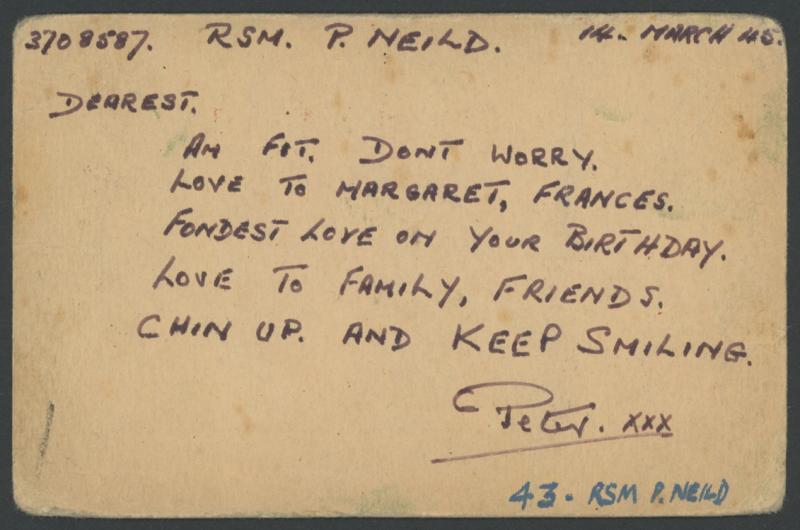 3708587. RSM. P. NEILD. 14. MARCH 45.
DEAREST.
AM FIT. DONT WORRY.
LOVE TO MARGARET, FRANCES.
FONDEST LOVE ON YOUR BIRTHDAY.
LOVE TO FAMILY, FRIENDS.
CHIN UP. AND KEEP SMILING.
Peter. xxx
43 - RSM P. NEILD